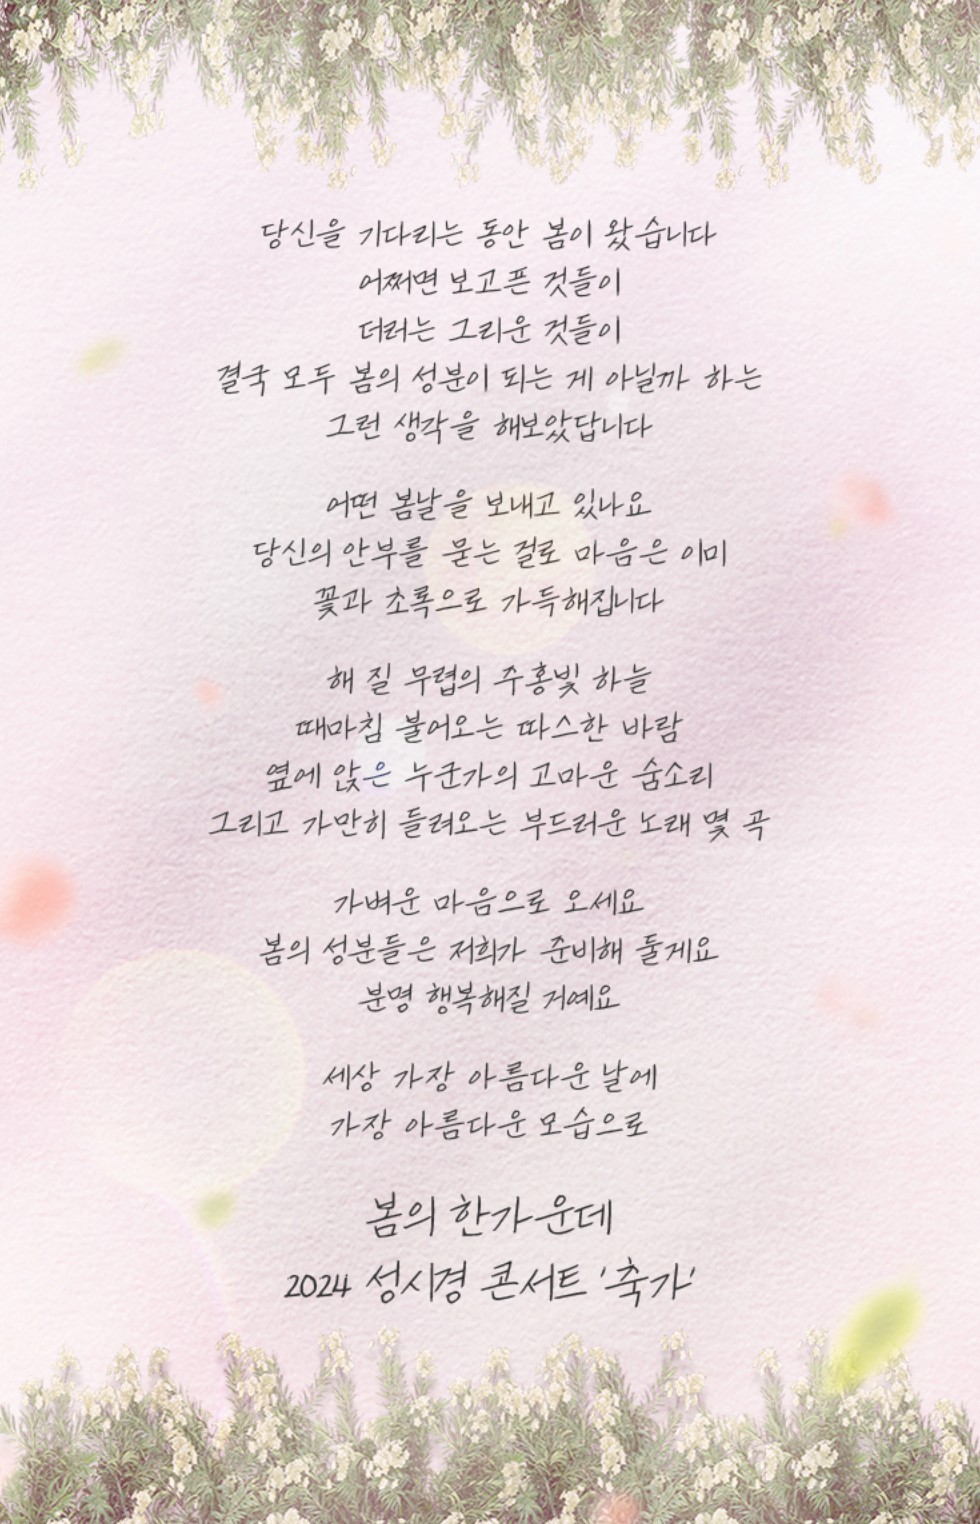 당신을 기다리는 동안 봄이 왔습니다
어쩌면 보고픈 것들이
더러는 그리운 것들이
결국 모두 봄의 성분이 되는 게 아닐까 하는
그런 생각을 해보았답니다
어떤 봄날을 보내고 있나요
당신의 안부를 묻는 걸로 마음은 이미
꽃과 초록으로 가득해집니다
해 질 무렵의 주홍빛 하늘
때마침 불어오는 따스한 바람
옆에 앉은 누군가의 고마운 숨소리
그리고 가만히 들려오는 부드러운 노래 몇 곡
가벼운 마음으로 오세요
봄의 성분들은 저희가 준비해 둘게요
분명 행복해질 거예요
세상 가장 아름다운 날에
가장 아름다운 모습으로
봄의 한가운데
2024 성시경 콘서트 '축가'